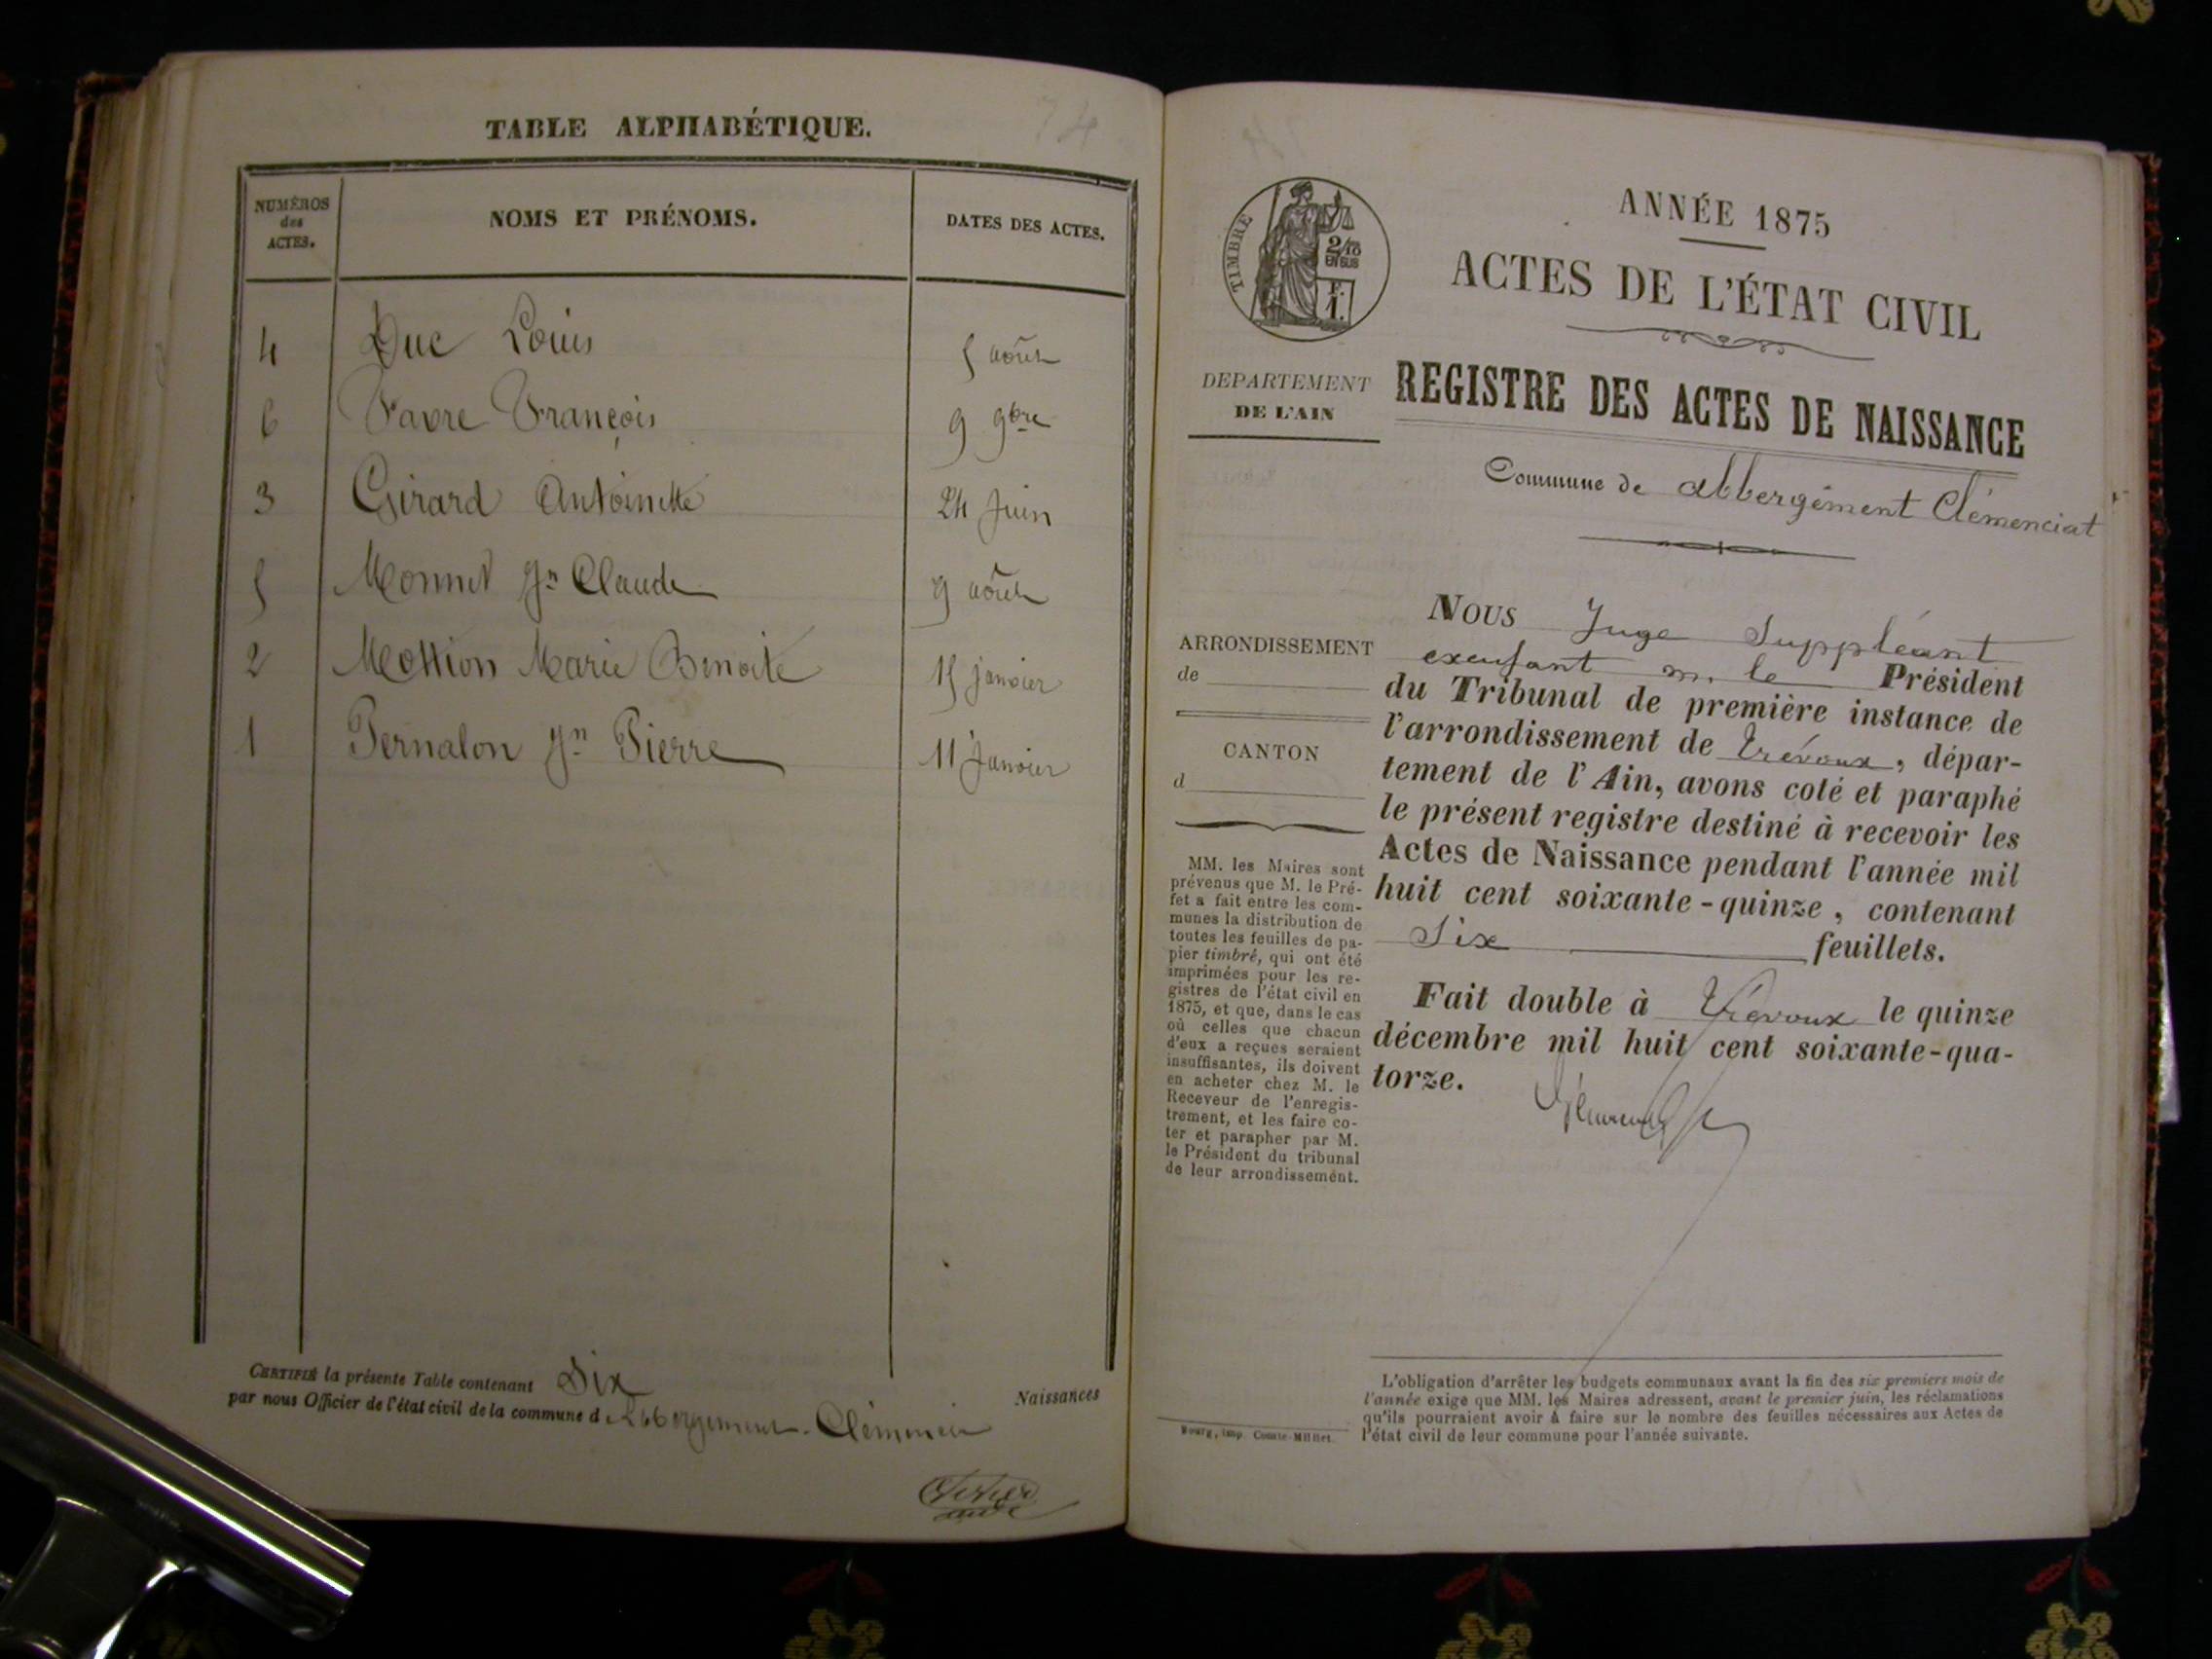 74
TABLE ALPHABÉTIQUE.
NUMÉROS
des
ACTES.
NOMS ET PRÉNOMS.
DATES DES ACTES.
4 Duc Louis 5 août
6 Favre François 9 9bre
3 Girard Antoinette 24 Juin
5 Monnet Jn Claude 9 août
2 Mottion Marie Benoite 15 janvier
1 Pernalon Jn Pierre 11 Janvier
CERTIFIÉ la présente Table contenant Six Naissances
par nous Officier de l'état civil de la commune d Abbergement-Clémencia
TIMBRE
2/10
EN SUS
F.
1.
ANNÉE 1875
ACTES DE L'ÉTAT CIVIL
DEPARTEMENT
DE L'AIN
REGISTRE DES ACTES DE NAISSANCE
Commune de Abbergement Clémenciat
ARRONDISSEMENT
de
CANTON
d
MM. les Maires sont
prévenus que M. le Pré-
fet a fait entre les com-
munes la distribution de
toutes les feuilles de pa-
pier timbré, qui ont été
imprimées pour les re-
gistres de l'état civil en
1875, et que, dans le cas
où celles que chacun
d'eux a reçues seraient
insuffisantes, ils doivent
en acheter chez M. le
Receveur de l'enregis-
trement, et les faire co-
ter et parapher par M.
le Président du tribunal
de leur arrondissement.
NOUS Juge Suppléant
excusant m. le Président
du Tribunal de première instance de
l'arrondissement de Trévoux, dépar-
tement de l'Ain, avons coté et paraphé
le présent registre destiné à recevoir les
Actes de Naissance pendant l'année mil
huit cent soixante-quinze, contenant
Six feuillets.
Fait double à Trévoux le quinze
décembre mil huit cent soixante-qua-
torze.
L'obligation d'arrêter les budgets communaux avant la fin des six premiers mois de
l'année exige que MM. les Maires adressent, avant le premier juin, les réclamations
qu'ils pourraient avoir à faire sur le nombre des feuilles nécessaires aux Actes de
l'état civil de leur commune pour l'année suivante.
Bourg, imp. Comte-Milliet.